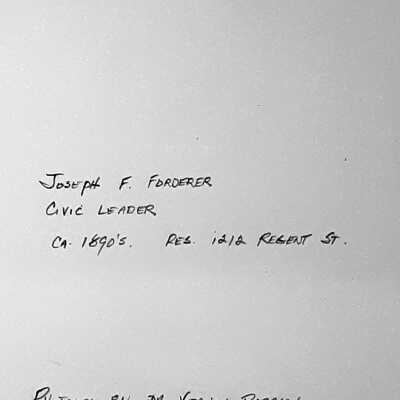 Joseph F. Forderer
Civic Leader
Ca. 1890's. Res. 1212 Regent St.